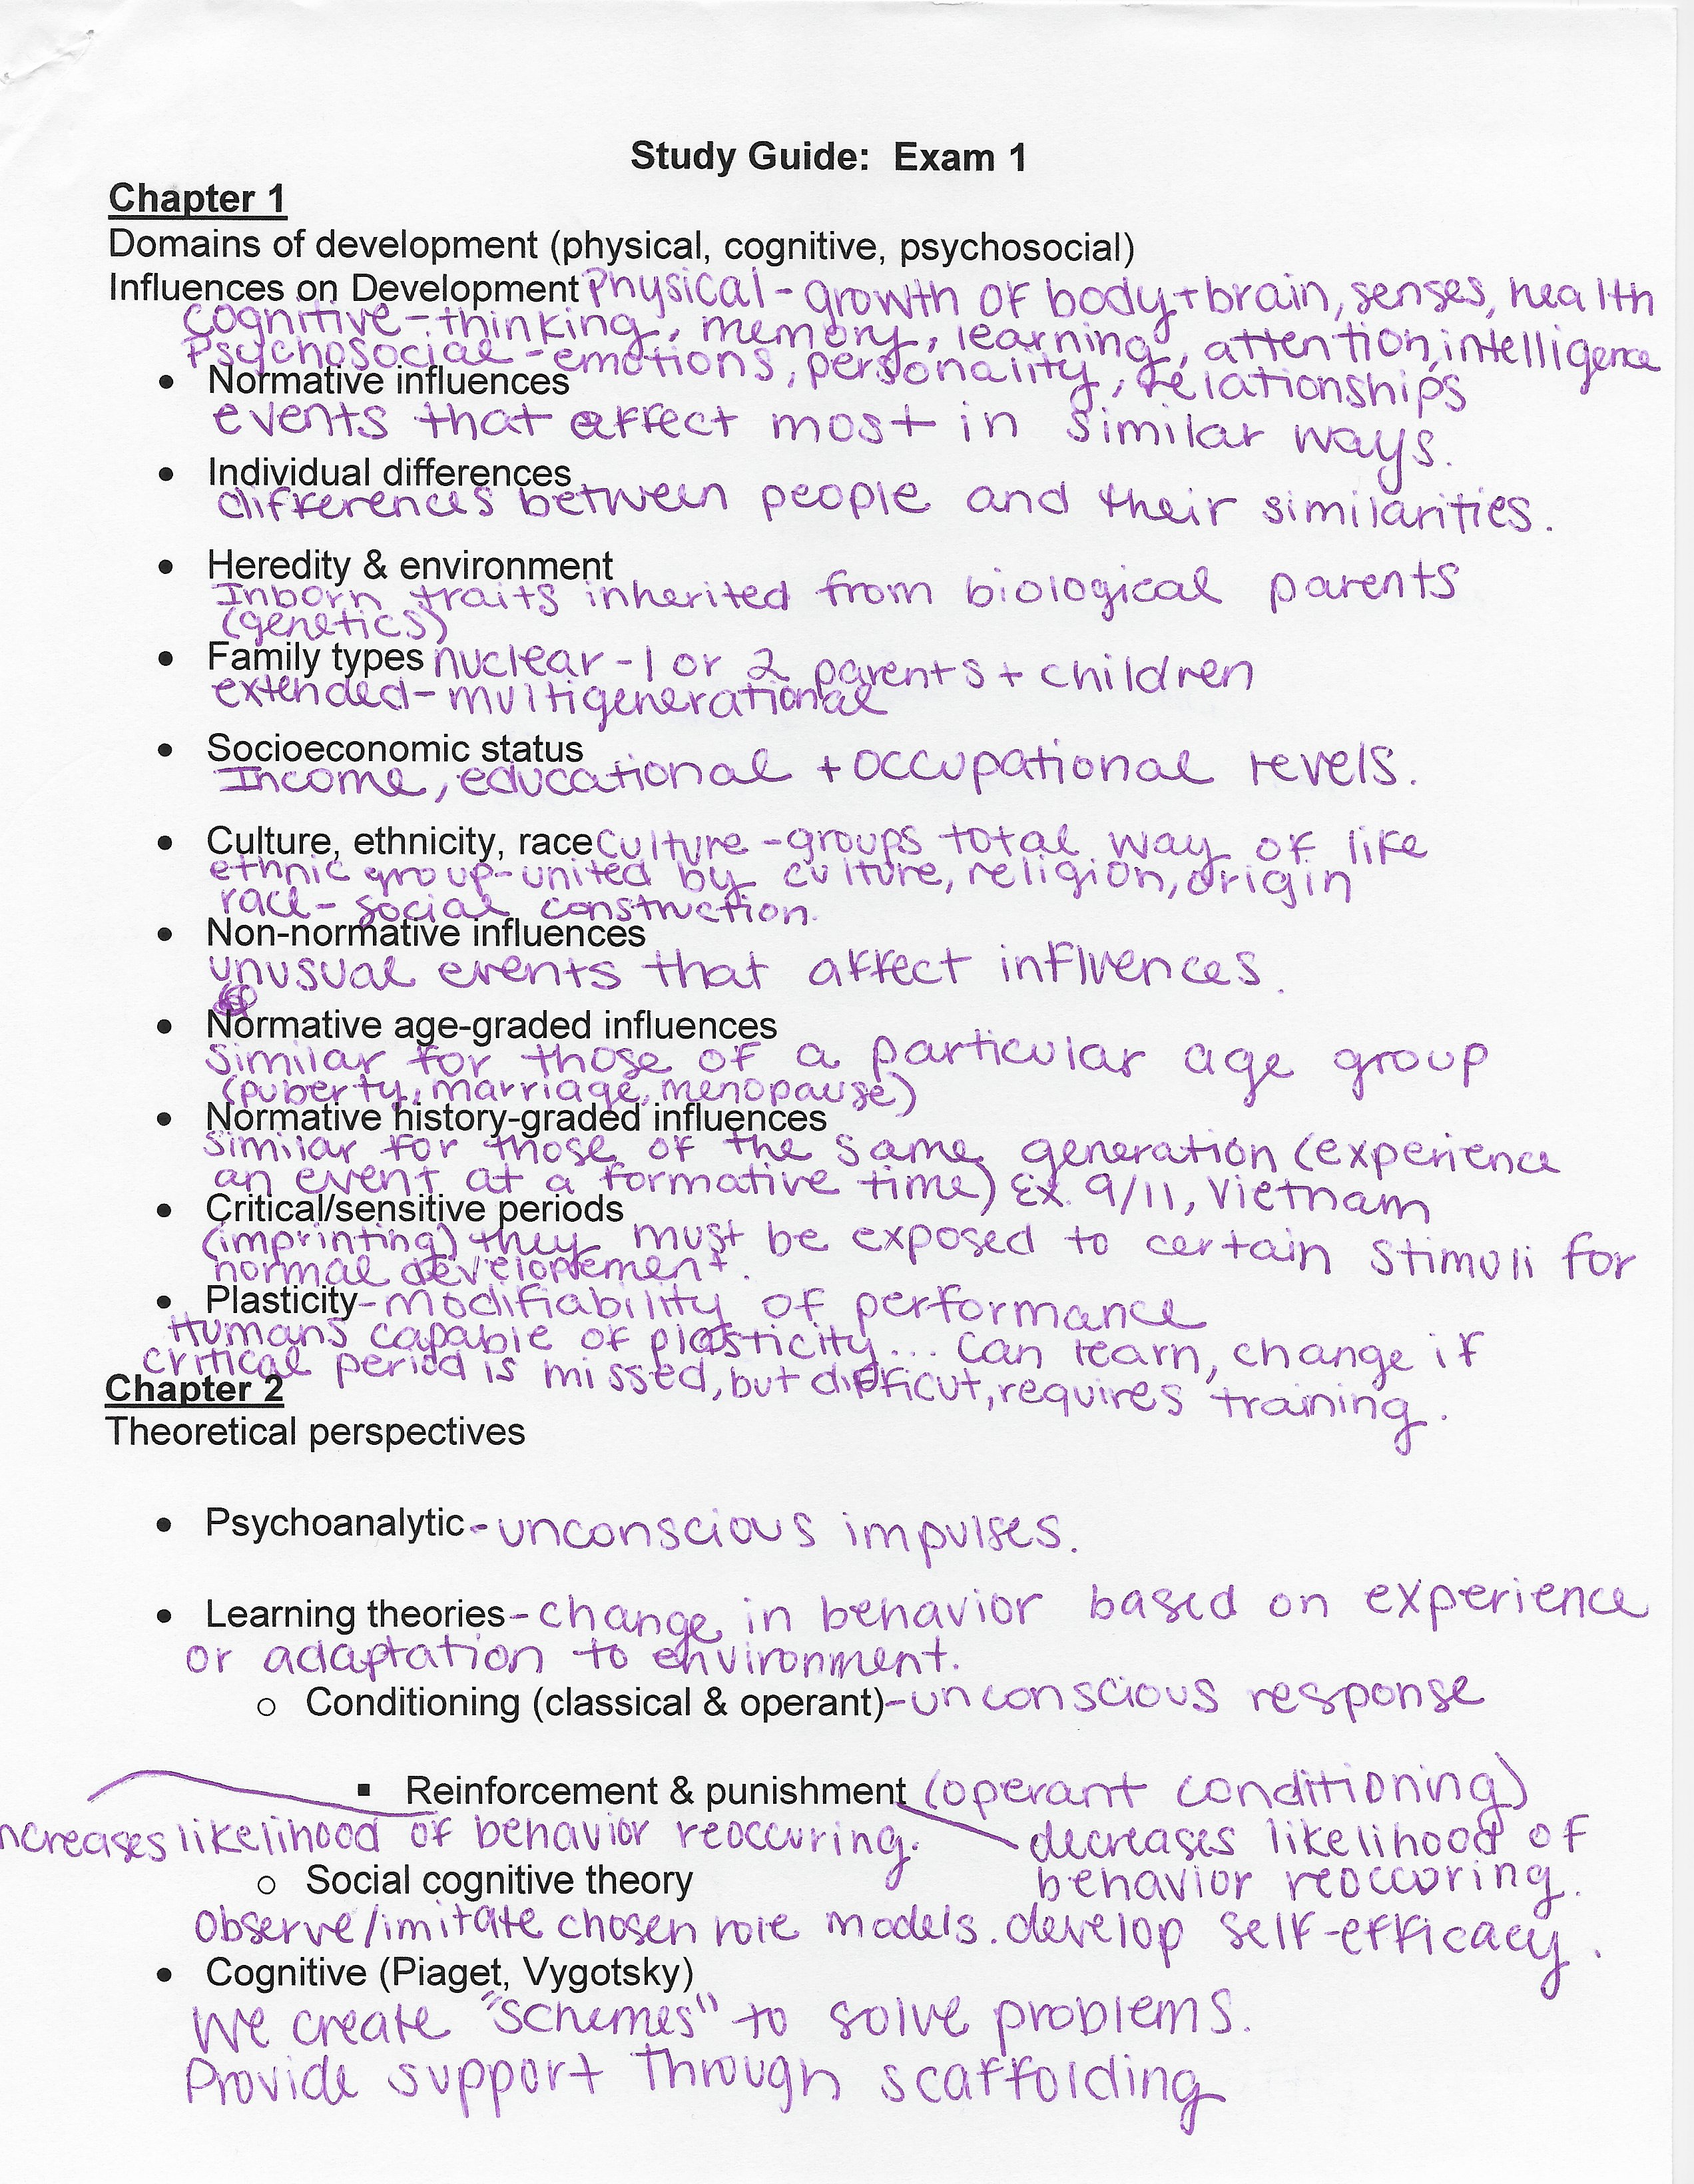 Study Guide:  Exam 1
Chapter 1
Domains of development (physical, cognitive, psychosocial)
Influences on Development Physical - growth of body + brain, senses, health
cognitive - thinking, memory, learning, attention, intelligence
Psychosocial - emotions, personality, relationships
• Normative influences
events that affect most in similar ways.
• Individual differences
differences between people and their similarities.
• Heredity & environment
Inborn traits inherited from biological parents
(genetics)
• Family types nuclear - 1 or 2 parents + children
extended - multigenerational
• Socioeconomic status
Income, educational + occupational levels.
• Culture, ethnicity, race Culture - groups total way of life
ethnic group - united by culture, religion, origin
race - social construction.
• Non-normative influences
unusual events that affect influences.
• Normative age-graded influences
similar for those of a particular age group
(puberty, marriage, menopause)
• Normative history-graded influences
similar for those of the same generation (experience
an event at a formative time) Ex. 9/11, Vietnam
• Critical/sensitive periods
(imprinting) they must be exposed to certain stimuli for
normal developement.
• Plasticity - modifiability of performance
Humans capable of plasticity... can learn, change if
critical period is missed, but difficut, requires training.
Chapter 2
Theoretical perspectives
• Psychoanalytic - unconscious impulses.
• Learning theories - change in behavior based on experience
or adaptation to environment.
o Conditioning (classical & operant) - unconscious response
▪ Reinforcement & punishment (operant conditioning)
ncreases likelihood of behavior reoccuring. decreases likelihood of
behavior reoccuring.
o Social cognitive theory
Observe/imitate chosen role models. develop self-efficacy.
• Cognitive (Piaget, Vygotsky)
We create "schemes" to solve problems.
Provide support through scaffolding